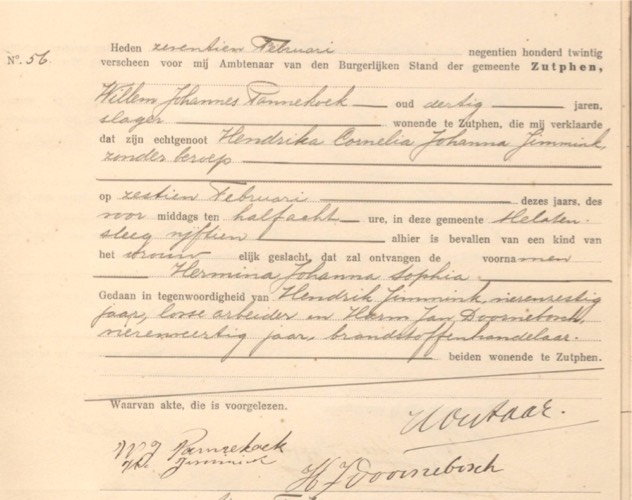 Nº. 56.
Heden zeventien Februari negentien honderd twintig
verscheen voor mij Ambtenaar van den Burgerlijken Stand der gemeente Zutphen,
Willem Johannes Pannekoek oud dertig jaren,
slager wonende te Zutphen, die mij verklaarde
dat zijn echtgenoot Hendrika Cornelia Johanna Jimmink,
zonder beroep
op zestien Februari dezes jaars, des
voor middags ten half acht ure, in deze gemeente
steeg vijftien alhier is bevallen van een kind van
het vrouw elijk geslacht, dat zal ontvangen de voorna men
Hermina Johanna Sophia
Gedaan in tegenwoordigheid van Hendrik Jimmink, vierenzestig
jaar, losse arbeider en Harm Jan Doornebosch,
vierenveertig jaar, brandstoffenhandelaar.
beiden wonende te Zutphen.
Waarvan akte, die is voorgelezen.
WJ Pannekoek
Jimmink
HJ Doornebosch